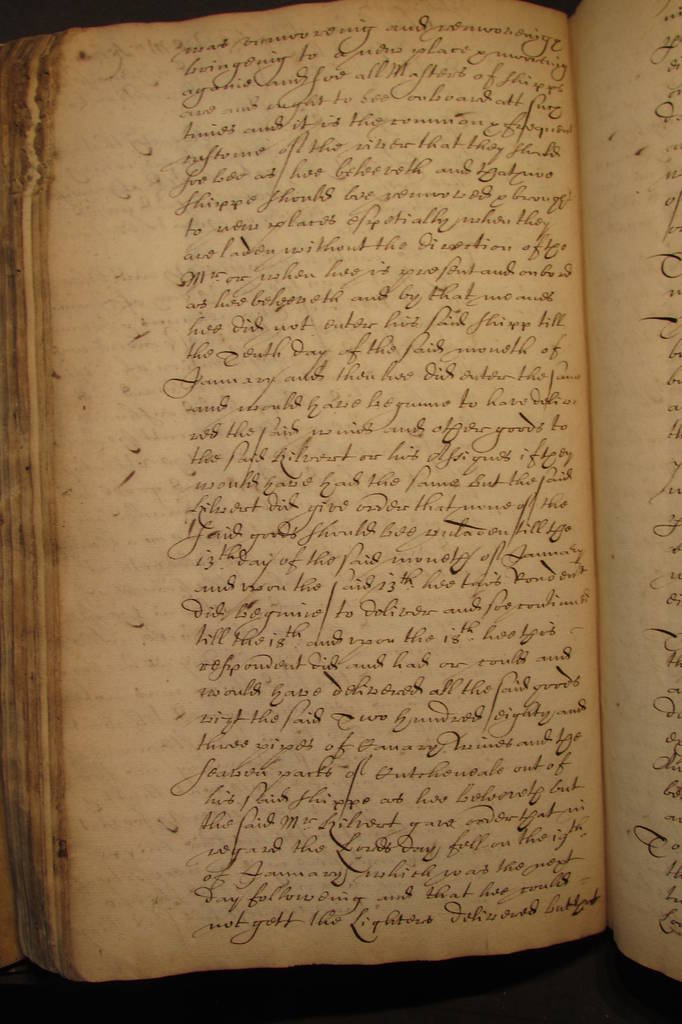 was removeinig and removeinge
bringeinig to a new place & mooreing
againe and soe all Masters of shipps
are and ought to bee onboard att such
times and it is the common & frequent
custome of the river that they should
soe bee as hee beleeveth and that noe
shippe should bee removed & brought
to new places espetially when they
are laden without the direction of the
Mr or when hee is present and onbord
as hee beleeveth and by that meanes
hee did not enter his said shipp till
the Tenth day of the said moneth of
January and then hee did enter the same
and would have begunne to have delive
red the said wines and other goods to
the said Kilvert or his Assignes if they
would have had the same but the said
Kilvert did give order that none of the
said goods should bee unladen till the
13th day of the said moneth of January
and upon the said 13th hee this Rondent
did beginne to deliver and soe continued
till the 18th and upon the 18th hee this
respondent did and had or could and
would have delivered all the said goods
vizt the said Two hundred eighty and
three pipes of Canary wines and the
seaven packs of Cutcheneale out of
his said shippe as hee beleeveth but
the said Mr Kilvert gave order that in
regard the Lords day fell on the 19th
of January which was the next
day followeing and that hee could
not gett the Lighters delivered but that